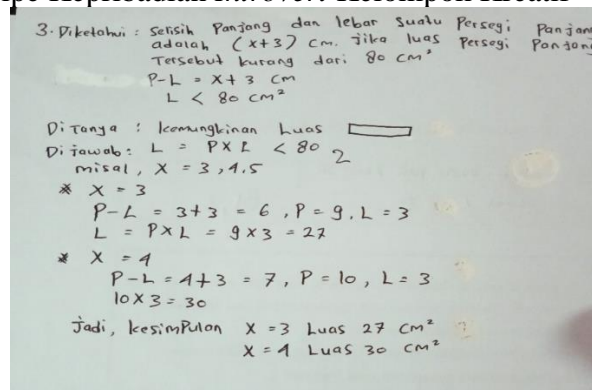 3. Diketahui : Selisih Panjang dan lebar Suatu Persegi Panjan
adalah (x+3) cm. Jika luas Persegi Panjang
Tersebut kurang dari 80 cm²
P-L = x+3 cm
L < 80 cm²
Di Tanya : kemungkinan Luas
Di jawab : L = P x L < 80 2
misal, x = 3,4.5
* X = 3
P-L = 3+3 = 6, P = 9, L = 3
L = P x L = 9 x 3 = 27
* X = 4
P-L = 4+3 = 7, P = 10, L = 3
10 x 3 = 30
Jadi, kesimpulan X = 3 Luas 27 cm²
X = 4 Luas 30 cm²